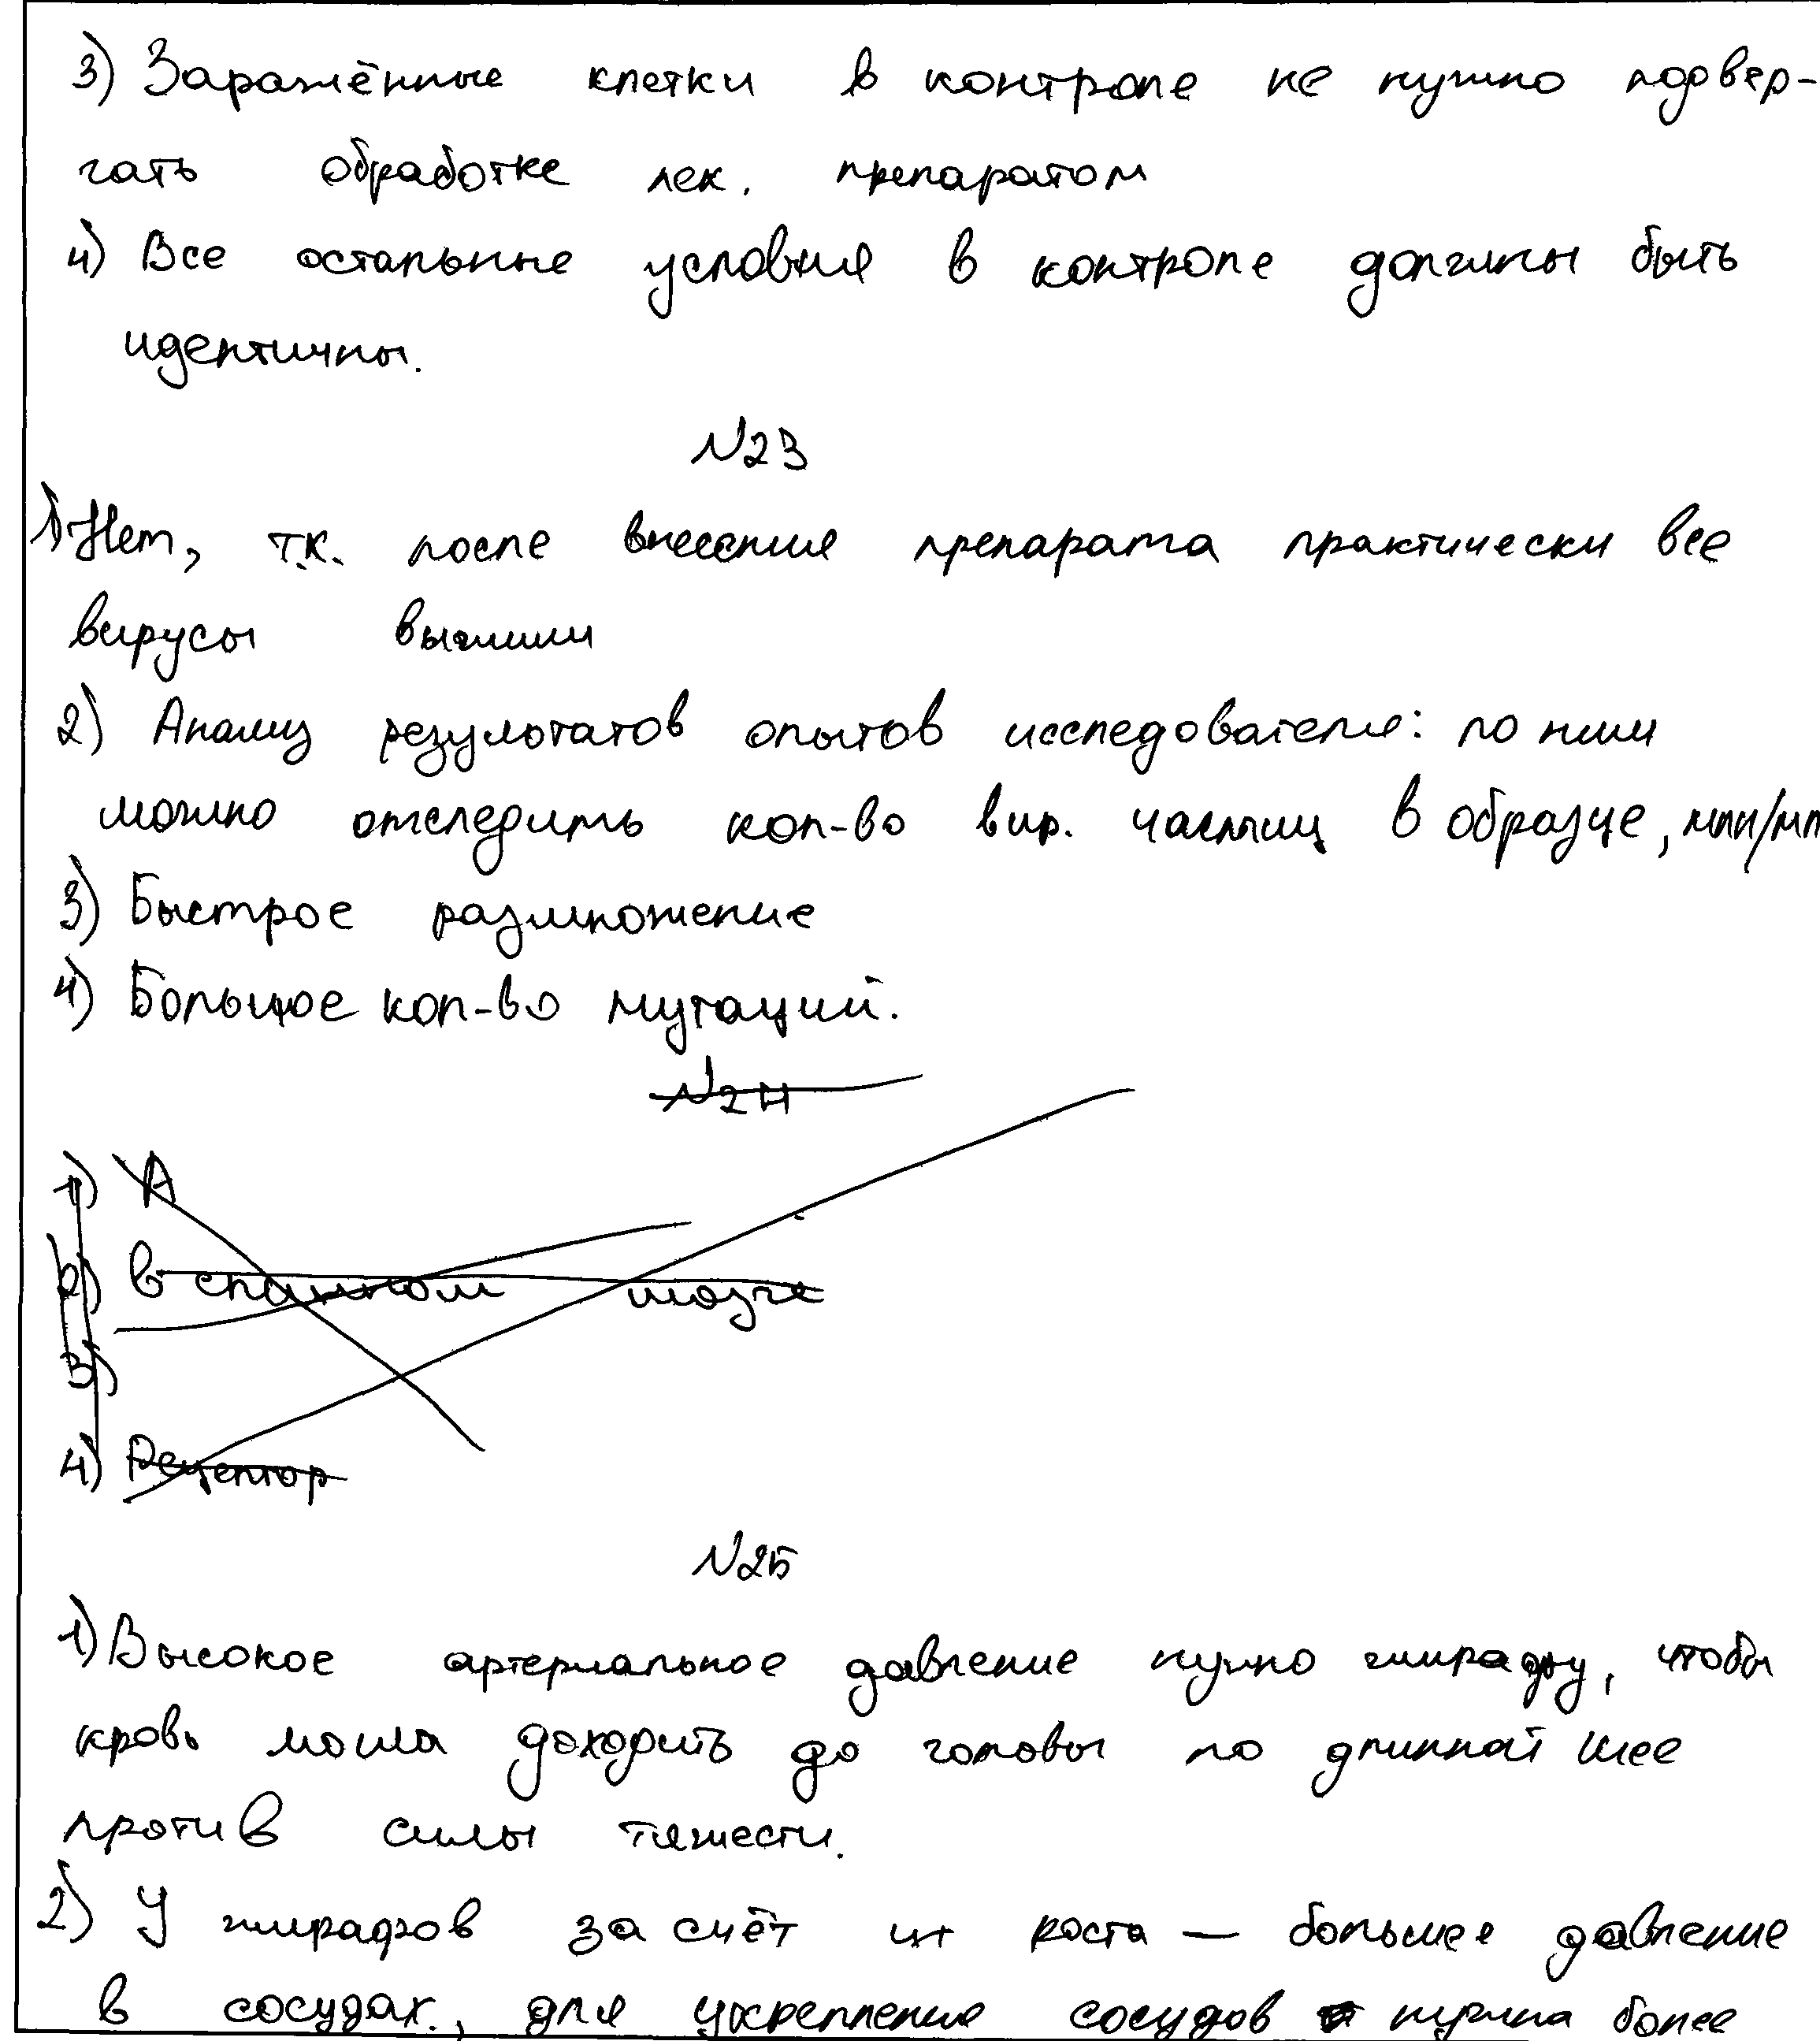 3) Заражённые клетки в контроле не нужно подвер-
гать обработке лек. препаратом
4) Все остальные условия в контроле должны быть
идентичны.
№23
1) Нет, т.к. после внесения препарата практически все
вирусы выжили
2) Анализ результатов опытов исследователя: по ним
можно отследить кол-во вир. частиц в образце, млн/мл
3) Быстрое размножение
4) Большое кол-во мутаций.
№24
1) А
2) В спинном мозге
3)
4) Рецептор
№25
1) Высокое артериальное давление нужно жирафу, чтобы
кровь могла доходить до головы по длинной шее
против силы тяжести.
2) У жирафов за счёт их роста — большее давление
в сосудах., для укрепления сосудов нужна более